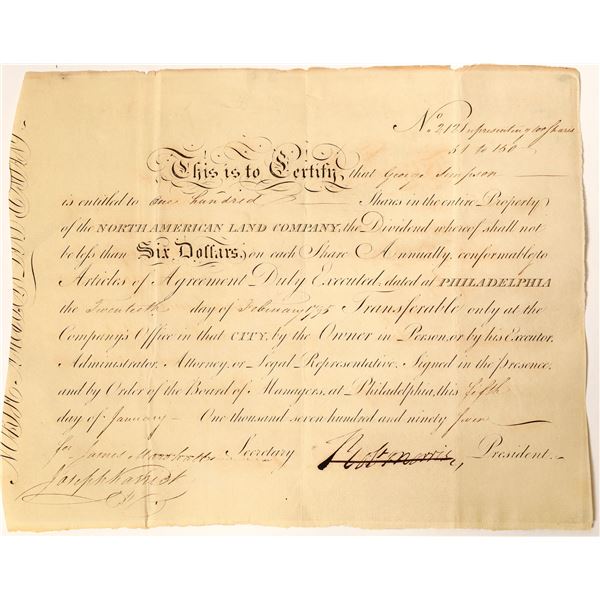 No. 2121 representing 100 Shares
51 to 150
This is to Certify, that George Simpson
is entitled to One hundred Shares in the entire Property
of the NORTH AMERICAN LAND COMPANY, the Dividend whereof shall not
be less than Six Dollars, on each Share Annually, conformable to
Articles of Agreement Duly Executed, dated at PHILADELPHIA
the Twentieth day of February 1795 Transferable only at the
Company's Office in that CITY, by the Owner in Person, or by his Executor,
Administrator, Attorney, or Legal Representative. Signed in the presence,
and by Order of the Board of Managers, at Philadelphia, this fifth
day of January One thousand seven hundred and ninety
for James Secretary Robt Morris, President.
Joseph